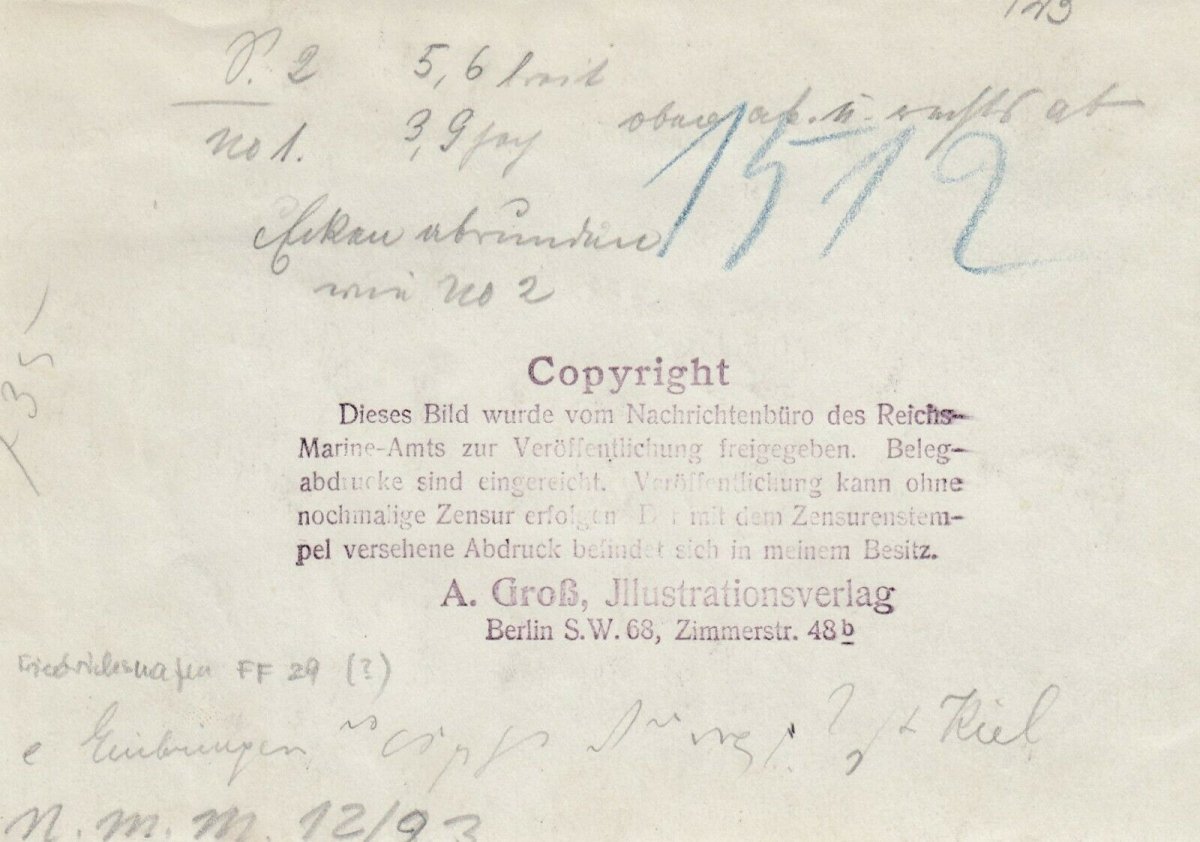 123
P. 2 5,6 breit
no 1. 3,9 hoch oben ab. u. rechts ab
1512
Ecken abrunden
wie No 2
Copyright
Dieses Bild wurde vom Nachrichtenbüro des Reichs-
Marine-Amts zur Veröffentlichung freigegeben. Beleg-
abdrucke sind eingereicht. Veröffentlichung kann ohne
nochmalige Zensur erfolgen Der mit dem Zensurenstem-
pel versehene Abdruck befindet sich in meinem Besitz.
A. Groß, Jllustrationsverlag
Berlin S.W. 68, Zimmerstr. 48b
Friedrichshafen FF 29 (?)
Einbringen Kiel
N. M. M. 12/93